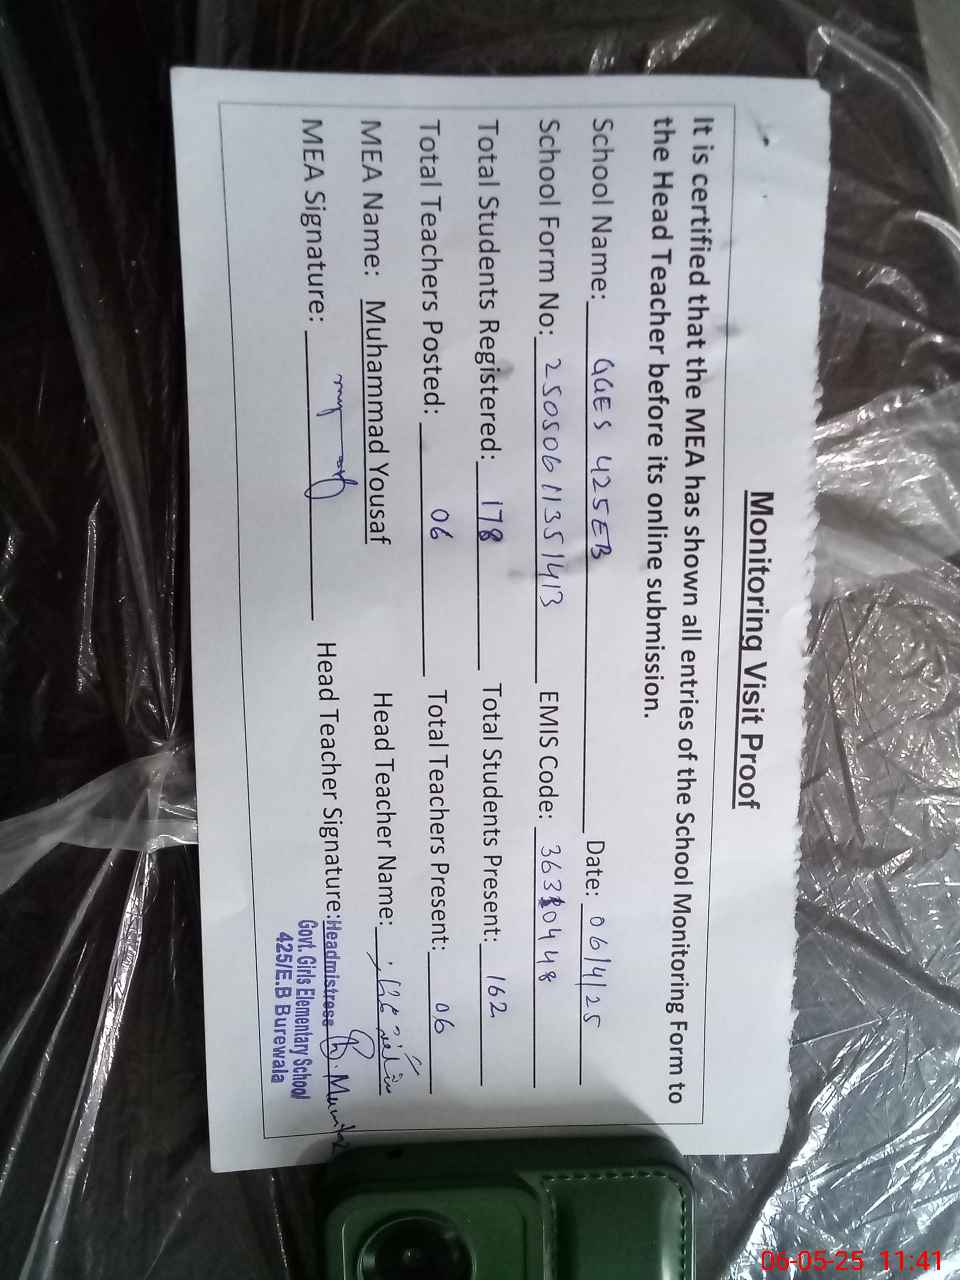 Monitoring Visit Proof
It is certified that the MEA has shown all entries of the School Monitoring Form to
the Head Teacher before its online submission.
School Name: GGES 425EB Date: 06/4/25
School Form No: 25050611351413 EMIS Code: 36310448
Total Students Registered: 178 Total Students Present: 162
Total Teachers Posted: 06 Total Teachers Present: 06
MEA Name: Muhammad Yousaf Head Teacher Name:
MEA Signature: Head Teacher Signature:
Headmistress
Govt. Girls Elementary School
425/E.B Burewala
06-05-25 11:41